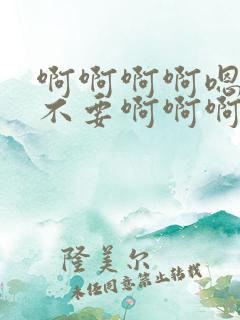 啊啊啊啊嗯
不要啊啊啊
隆美尔
未经同意禁止转载